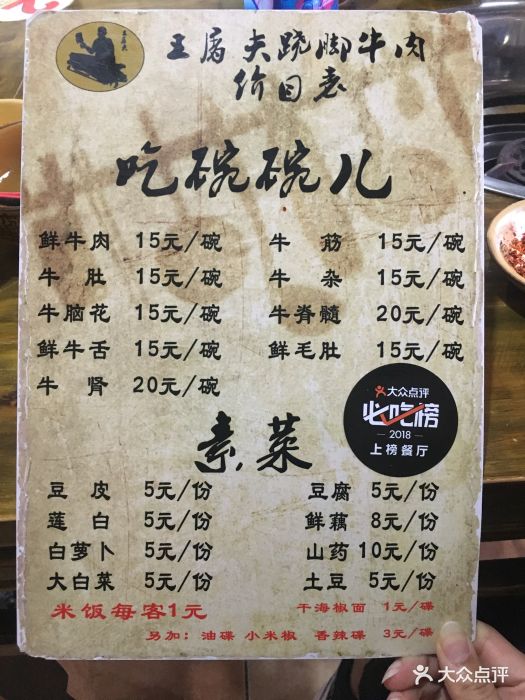 王屠夫跷脚牛肉
价目表
吃碗碗儿
鲜牛肉 15元/碗 牛筋 15元/碗
牛肚 15元/碗 牛杂 15元/碗
牛脑花 15元/碗 牛脊髓 20元/碗
鲜牛舌 15元/碗 鲜毛肚 15元/碗
牛肾 20元/碗
大众点评
必吃榜
2018
上榜餐厅
素菜
豆皮 5元/份 豆腐 5元/份
莲白 5元/份 鲜藕 8元/份
白萝卜 5元/份 山药 10元/份
大白菜 5元/份 土豆 5元/份
米饭每客1元 干海椒面 1元/碟
另加：油碟 小米椒 香辣碟 3元/碟
大众点评